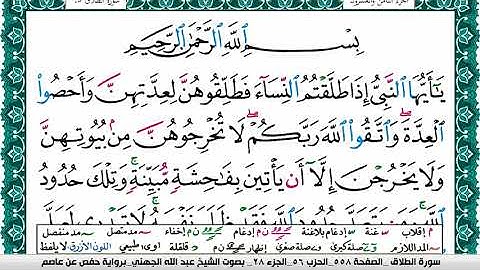 الجزء الثامن والعشرون
سورة الطلاق
بِسْمِ ٱللَّهِ ٱلرَّحْمَٰنِ ٱلرَّحِيمِ
يَٰٓأَيُّهَا ٱلنَّبِىُّ إِذَا طَلَّقْتُمُ ٱلنِّسَآءَ فَطَلِّقُوهُنَّ لِعِدَّتِهِنَّ وَأَحْصُوا۟
ٱلْعِدَّةَ ۖ وَٱتَّقُوا۟ ٱللَّهَ رَبَّكُمْ ۖ لَا تُخْرِجُوهُنَّ مِنۢ بُيُوتِهِنَّ
وَلَا يَخْرُجْنَ إِلَّآ أَن يَأْتِينَ بِفَٰحِشَةٍ مُّبَيِّنَةٍ ۚ وَتِلْكَ حُدُودُ
م/ إقلاب غنة إدغام بلاغنة إخفاء مد متصل مد منفصل
المد اللازم صلة كبرى صلة صغرى إظهار قلقلة ا،و،ى/ طبيعي اللون الأزرق/ لا يلفظ
سورة الطلاق _ الصفحة ٥٥٨_ الحزب ٥٦_ الجزء ٢٨ _ بصوت الشيخ عبد الله الجهني_ برواية حفص عن عاصم